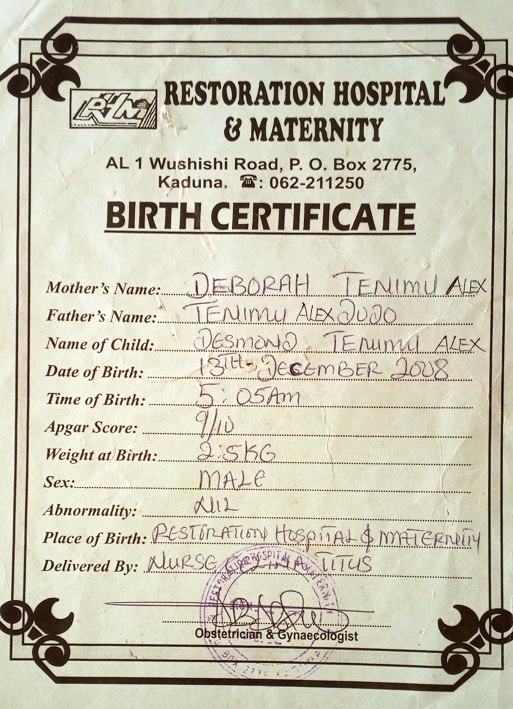 RHM RESTORATION HOSPITAL
& MATERNITY
AL 1 Wushishi Road, P. O. Box 2775,
Kaduna. ☎: 062-211250
BIRTH CERTIFICATE
Mother's Name: DEBORAH TENIMU ALEX
Father's Name: TENIMU ALEX DUJO
Name of Child: DESMOND TENIMU ALEX
Date of Birth: 13TH DECEMBER 2008
Time of Birth: 5:05AM
Apgar Score: 9/10
Weight at Birth: 2.5KG
Sex: MALE
Abnormality: NIL
Place of Birth: RESTORATION HOSPITAL & MATERNITY
Delivered By: NURSE TITUS
RESTORATION HOSPITAL & MATERNITY
Obstetrician & Gynaecologist
BOX 2775